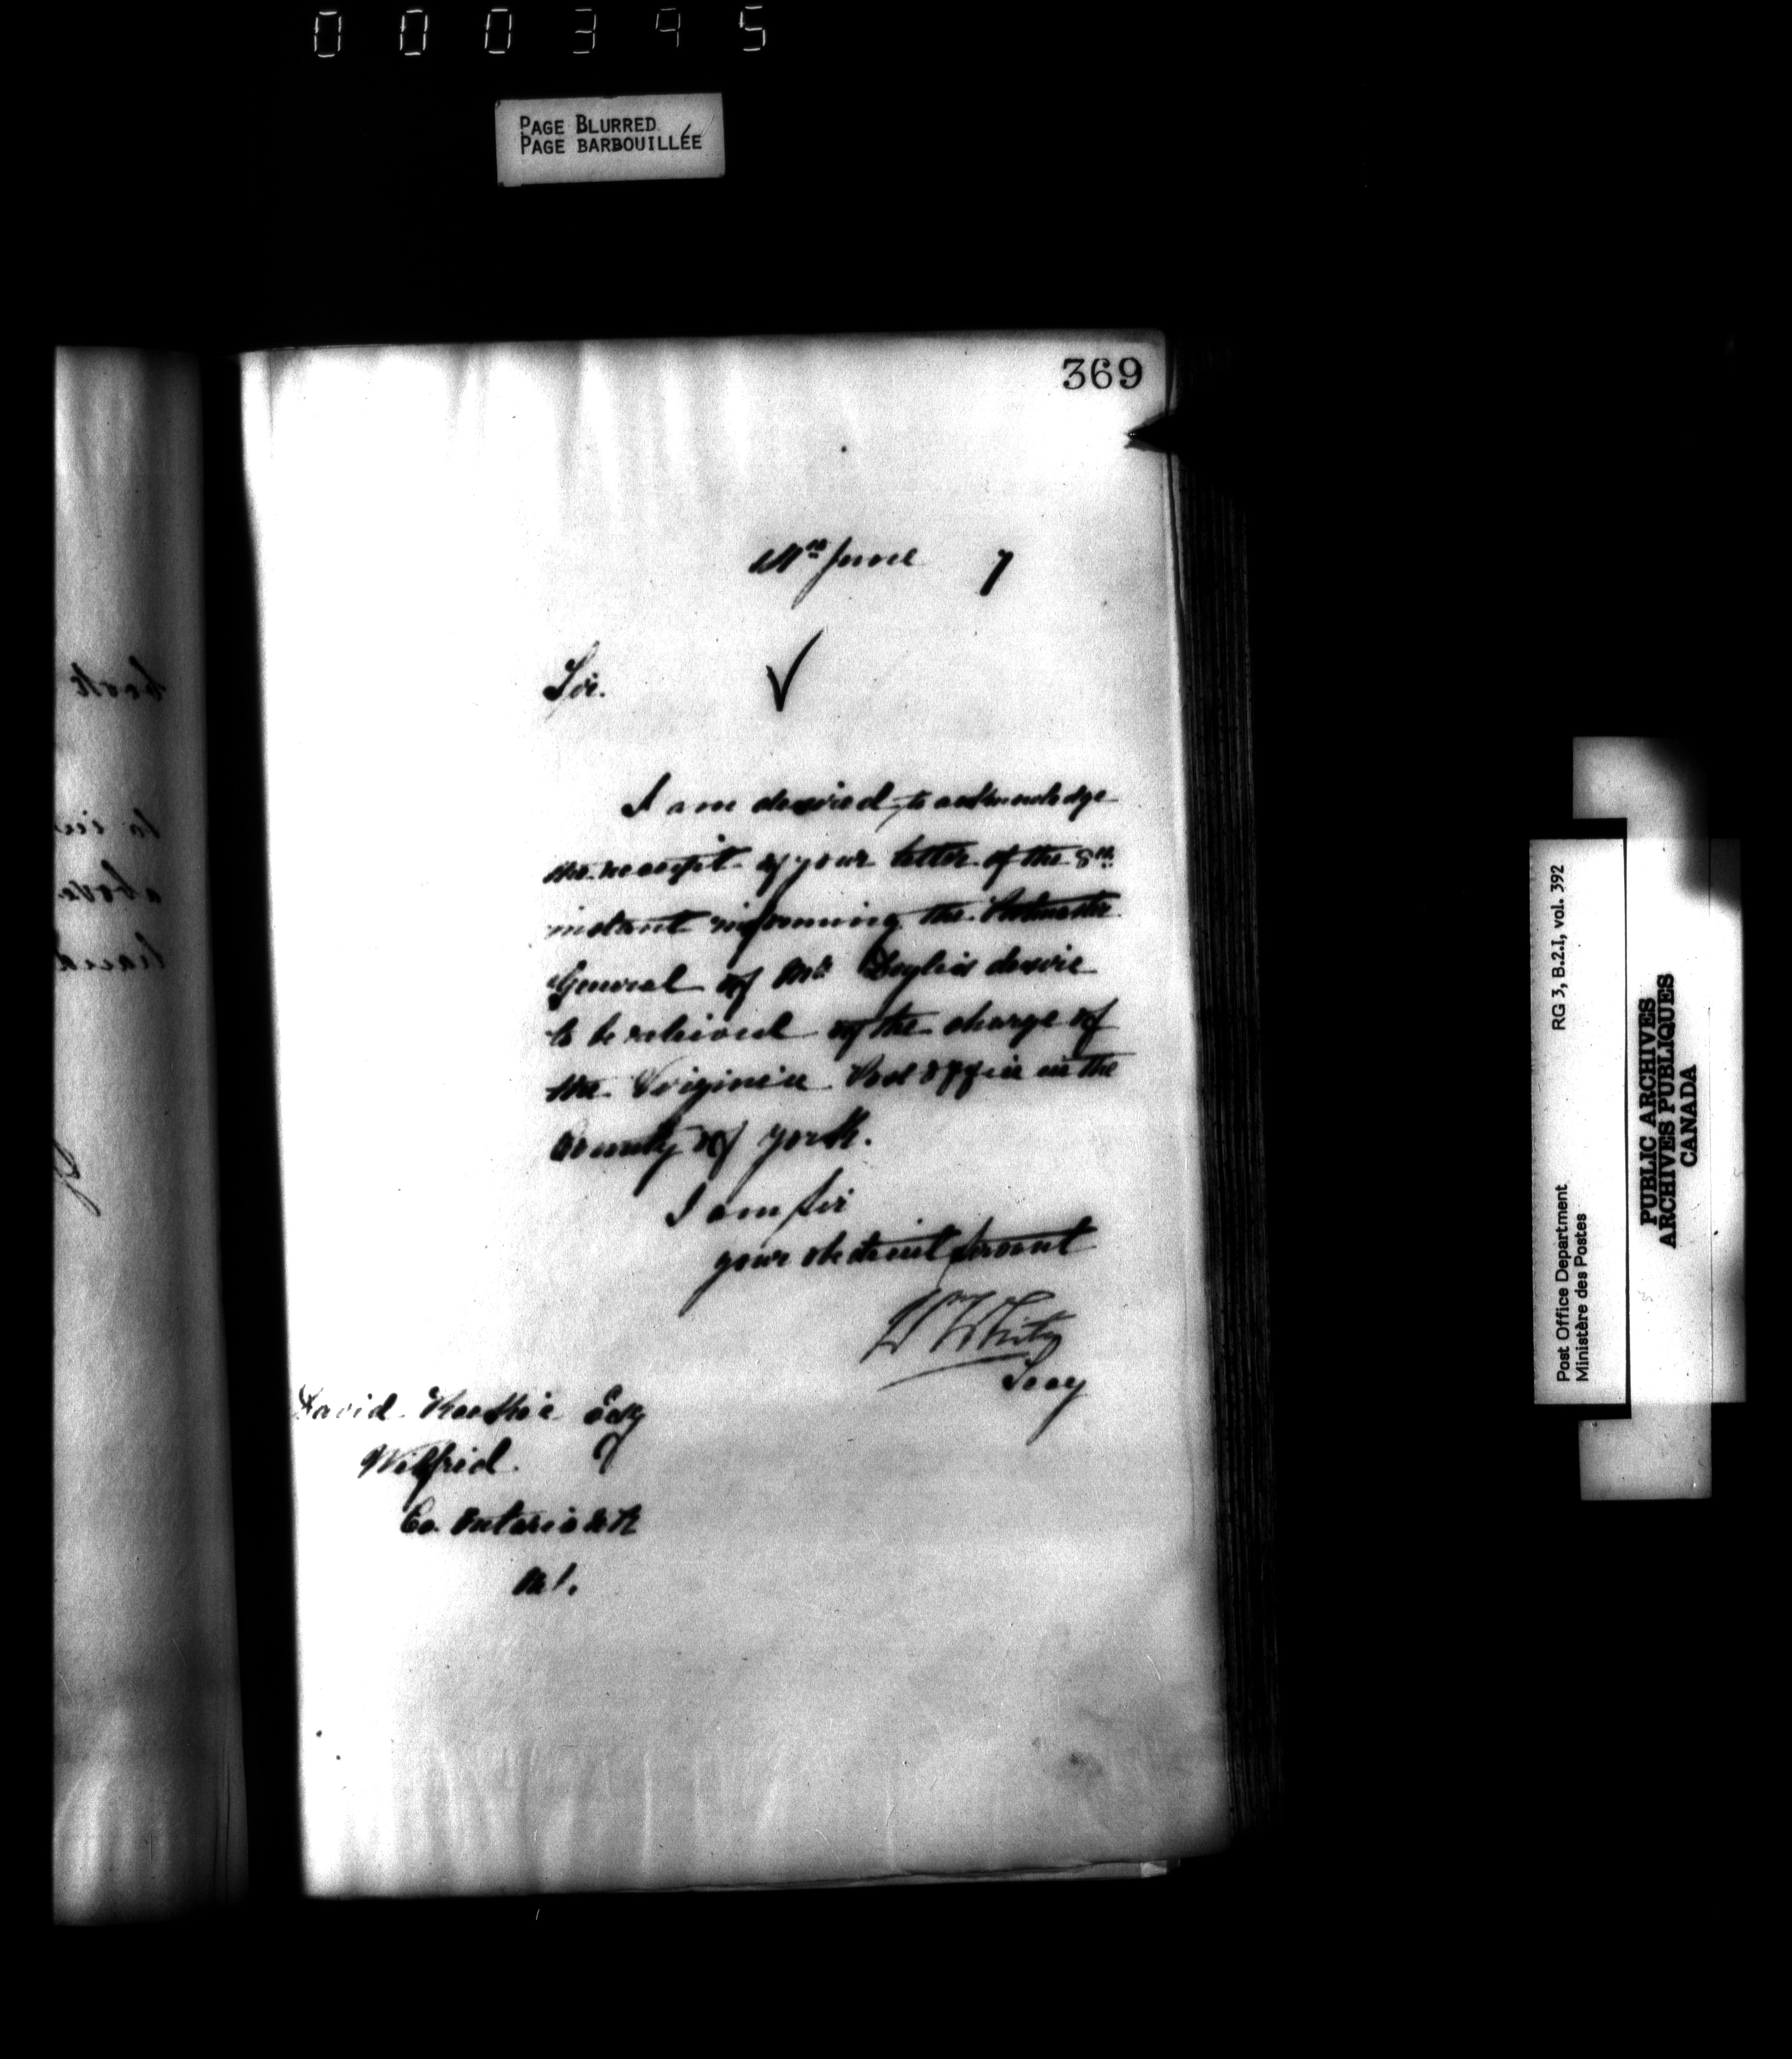 000395
PAGE BLURRED
PAGE BARBOUILLÉE
369
June 7
Sir.
I am desired to acknowledge
the receipt of your letter of the 8th
instant informing the Postmaster
General of Mr Doyle's desire
to be relieved of the charge of
the Virginia Post Office in the
County of York.
I am Sir
your obedient Servant
W White
Secy
David Esq
Wilfrid.
Co. Ontario
RG 3, B.2.I, vol. 392
Post Office Department
Ministère des Postes
PUBLIC ARCHIVES
ARCHIVES PUBLIQUES
CANADA